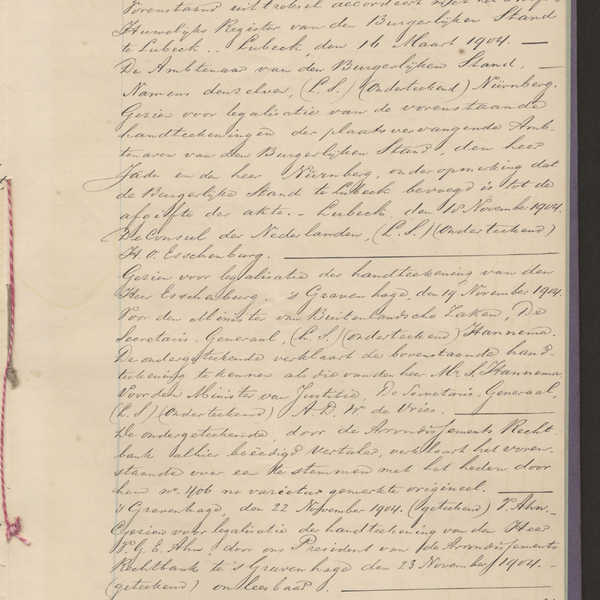 Vorenstaand uittreksel accordeert met het
Huwelijks Register van den Burgerlijken Stand
te Lubeck. Lubeck, den 16 Maart 1904. —
De Ambtenaar van den Burgerlijken Stand, —
Namens denzelven, (L. S.) (Onderteekend) Nürnberg.
Gezien voor legalisatie van de vorenstaande
handteekeningen der plaatsvervangende Amb-
tenaren van den Burgerlijken Stand, den heer
Jade en den heer Nürnberg, onder opmerking dat
de Burgerlijke Stand te Lubeck bevoegd is tot de
afgifte der akte. - Lubeck, den 18 November 1904.
De Consul der Nederlanden, (L. S.) (Onderteekend)
H. O. Esschenburg. —
Gezien voor legalisatie der handteekening van den
Heer Esschenburg. 's Gravenhage, den 19 November 1904.
Voor den Minister van Buitenlandsche Zaken, De
Secretaris-Generaal, (L. S.) (onderteekend) Hannema.
De ondergeteekende verklaart de bovenstaande hand-
teekening te kennen als die van den heer Mr. S. Hannema.
Voor den Minister van Justitie, De Secretaris-Generaal,
(L. S.) (Onderteekend) A. D. W. de Vries. —
De ondergeteekende, door de Arrondissements Recht-
bank alhier beëedigd Vertaler, verklaart het voren-
staande overeen te stemmen met het heden door
hem no. 406 ne varietur gemerkte origineel. —
's Gravenhage, den 22 November 1904. (geteekend) P. Ahn. -
Gezien voor legalisatie der handteekening van den Heer
P. G. E. Ahn door ons President van de Arrondissements
Rechtbank te 's Gravenhage den 23 November 1904. -
(geteekend) onleesbaar. —